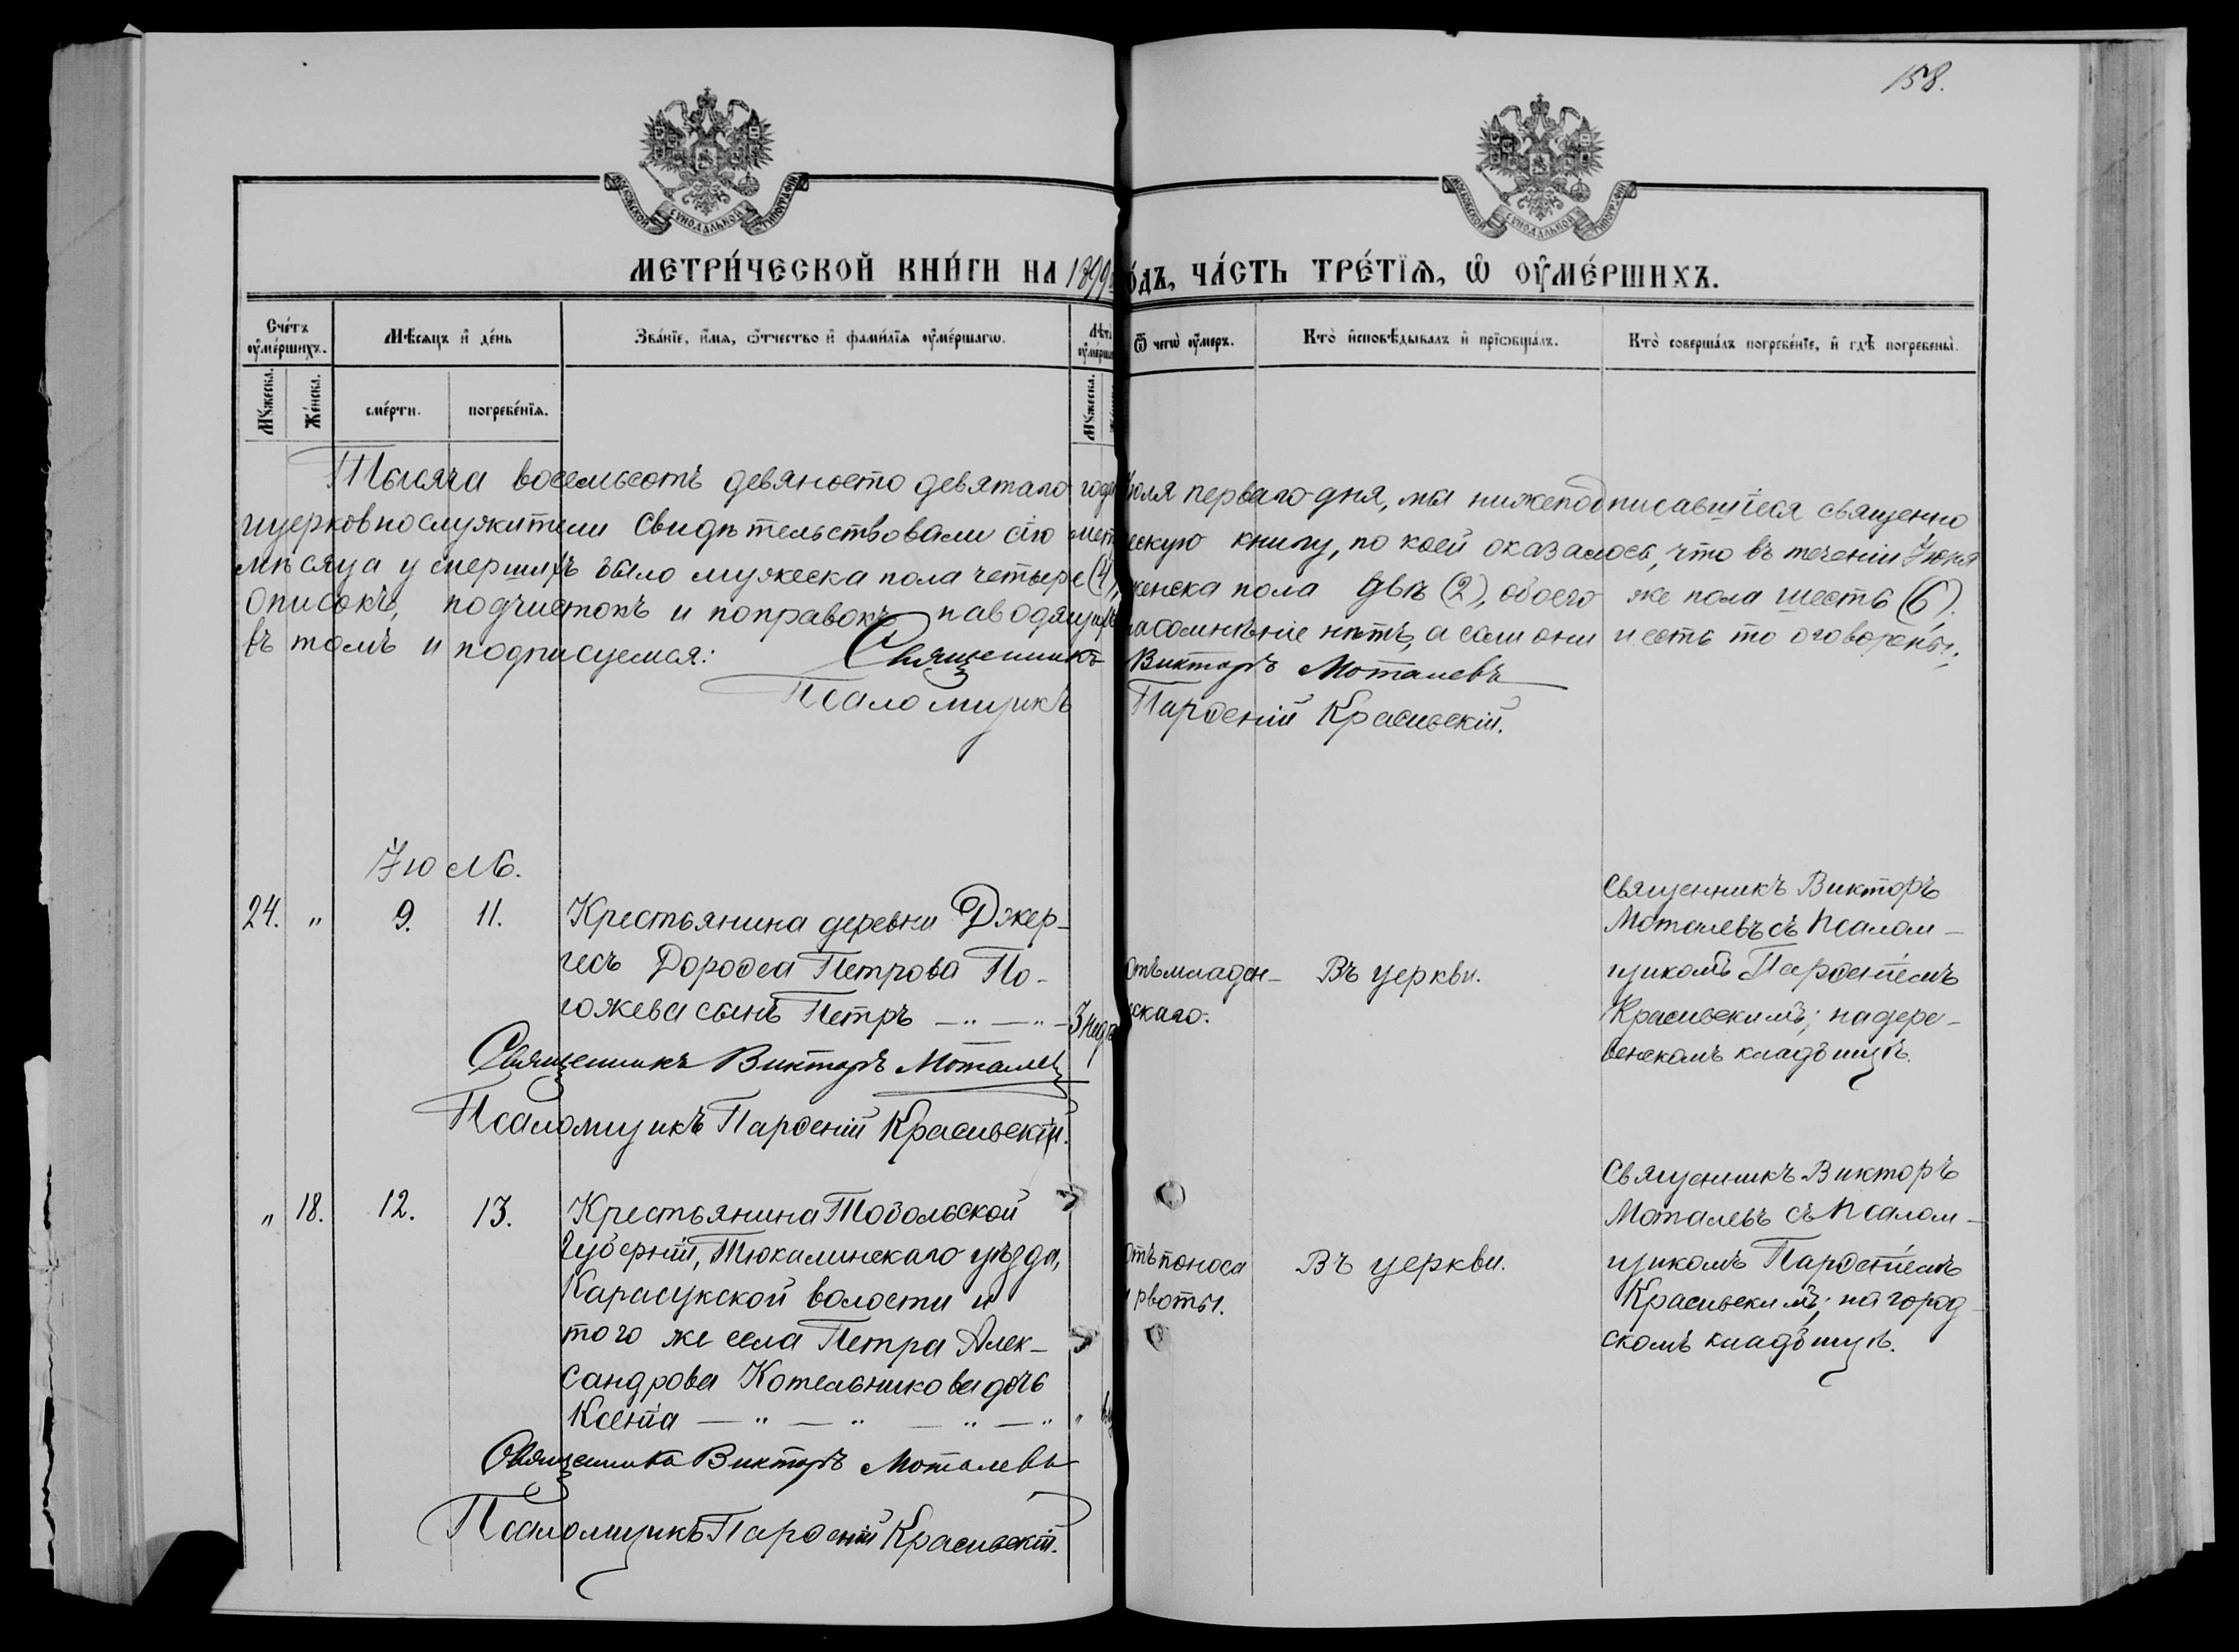 158.
МОСКОВСКОЙ СѴНОДАЛЬНОЙ ТИПОГРАФІИ
МОСКОВСКОЙ СѴНОДАЛЬНОЙ ТИПОГРАФІИ
МЕТРИ́ЧЕСКОЙ КНИ́ГИ НА 1899 го́дъ, ЧА́СТЬ ТРЕ́ТІѦ, Ѡ҆ ОУ҆МЕ́РШИХЪ.
Сче́тъ оу҆ме́ршихъ.
Мѣсѧцъ и҆ де́нь
Зва́нїе, и҆́мѧ, ѻ҆́тчество и҆ фами́лїѧ оу҆ме́ршагѡ.
Лѣта̀ оу҆ме́рша
Ѿ чегѡ̀ оу҆́меръ.
Кто̀ и҆сповѣ́дывалъ и҆ прїѡбща́лъ.
Кто̀ соверша́лъ погребе́нїе, и҆ гдѣ̀ погребены̀.
Мꙋ́жеска.
Же́нска.
сме́рти.
погребе́нїѧ.
Мꙋ́жеска.
Тысяча восемьсотъ девяносто девятаго года Іюля перваго дня, мы нижеподписавшіеся священно
ицерковнослужители свидѣтельствовали сію метрическую книгу, по коей оказалось, что въ теченіи Іюня
мѣсяца умершихъ было мужеска пола четыре (4), женска пола двѣ (2), обоего же пола шесть (6).
Описокъ, подчистокъ и поправокъ наводящихъ насомнѣніе нѣтъ, а если они и есть то оговорены,
въ томъ и подписуемся: Священникъ Викторъ Моталевъ
Псаломщикъ Парѳеній Красивскій.
Іюль.
24. " 9. 11. Крестьянина деревни Джер-
гесъ Дороѳея Петрова По-
гожева сынъ Петръ — " — " — 3 нед
отъ младен-
ческаго.
Въ церкви.
Священникъ Викторъ
Моталевъ съ псалом-
щикомъ Парѳеніемъ
Красивскимъ; на дере-
венскомъ кладбищѣ.
Священникъ Викторъ Моталевъ
Псаломщикъ Парѳеній Красивскій.
" 18. 12. 13. Крестьянина Тобольской
Губерніи, Тюкалинскаго уѣзда,
Карасукской волости и
того же села Петра Алек-
сандрова Котельникова дочь
Ксенія — " — " — " — " "
отъ поноса
и рвоты.
Въ церкви.
Священникъ Викторъ
Моталевъ съ Псалом-
щикомъ Парѳеніемъ
Красивскимъ; на город-
скомъ кладбищѣ.
Священникъ Викторъ Моталевъ
Псаломщикъ Парѳеній Красивскій.